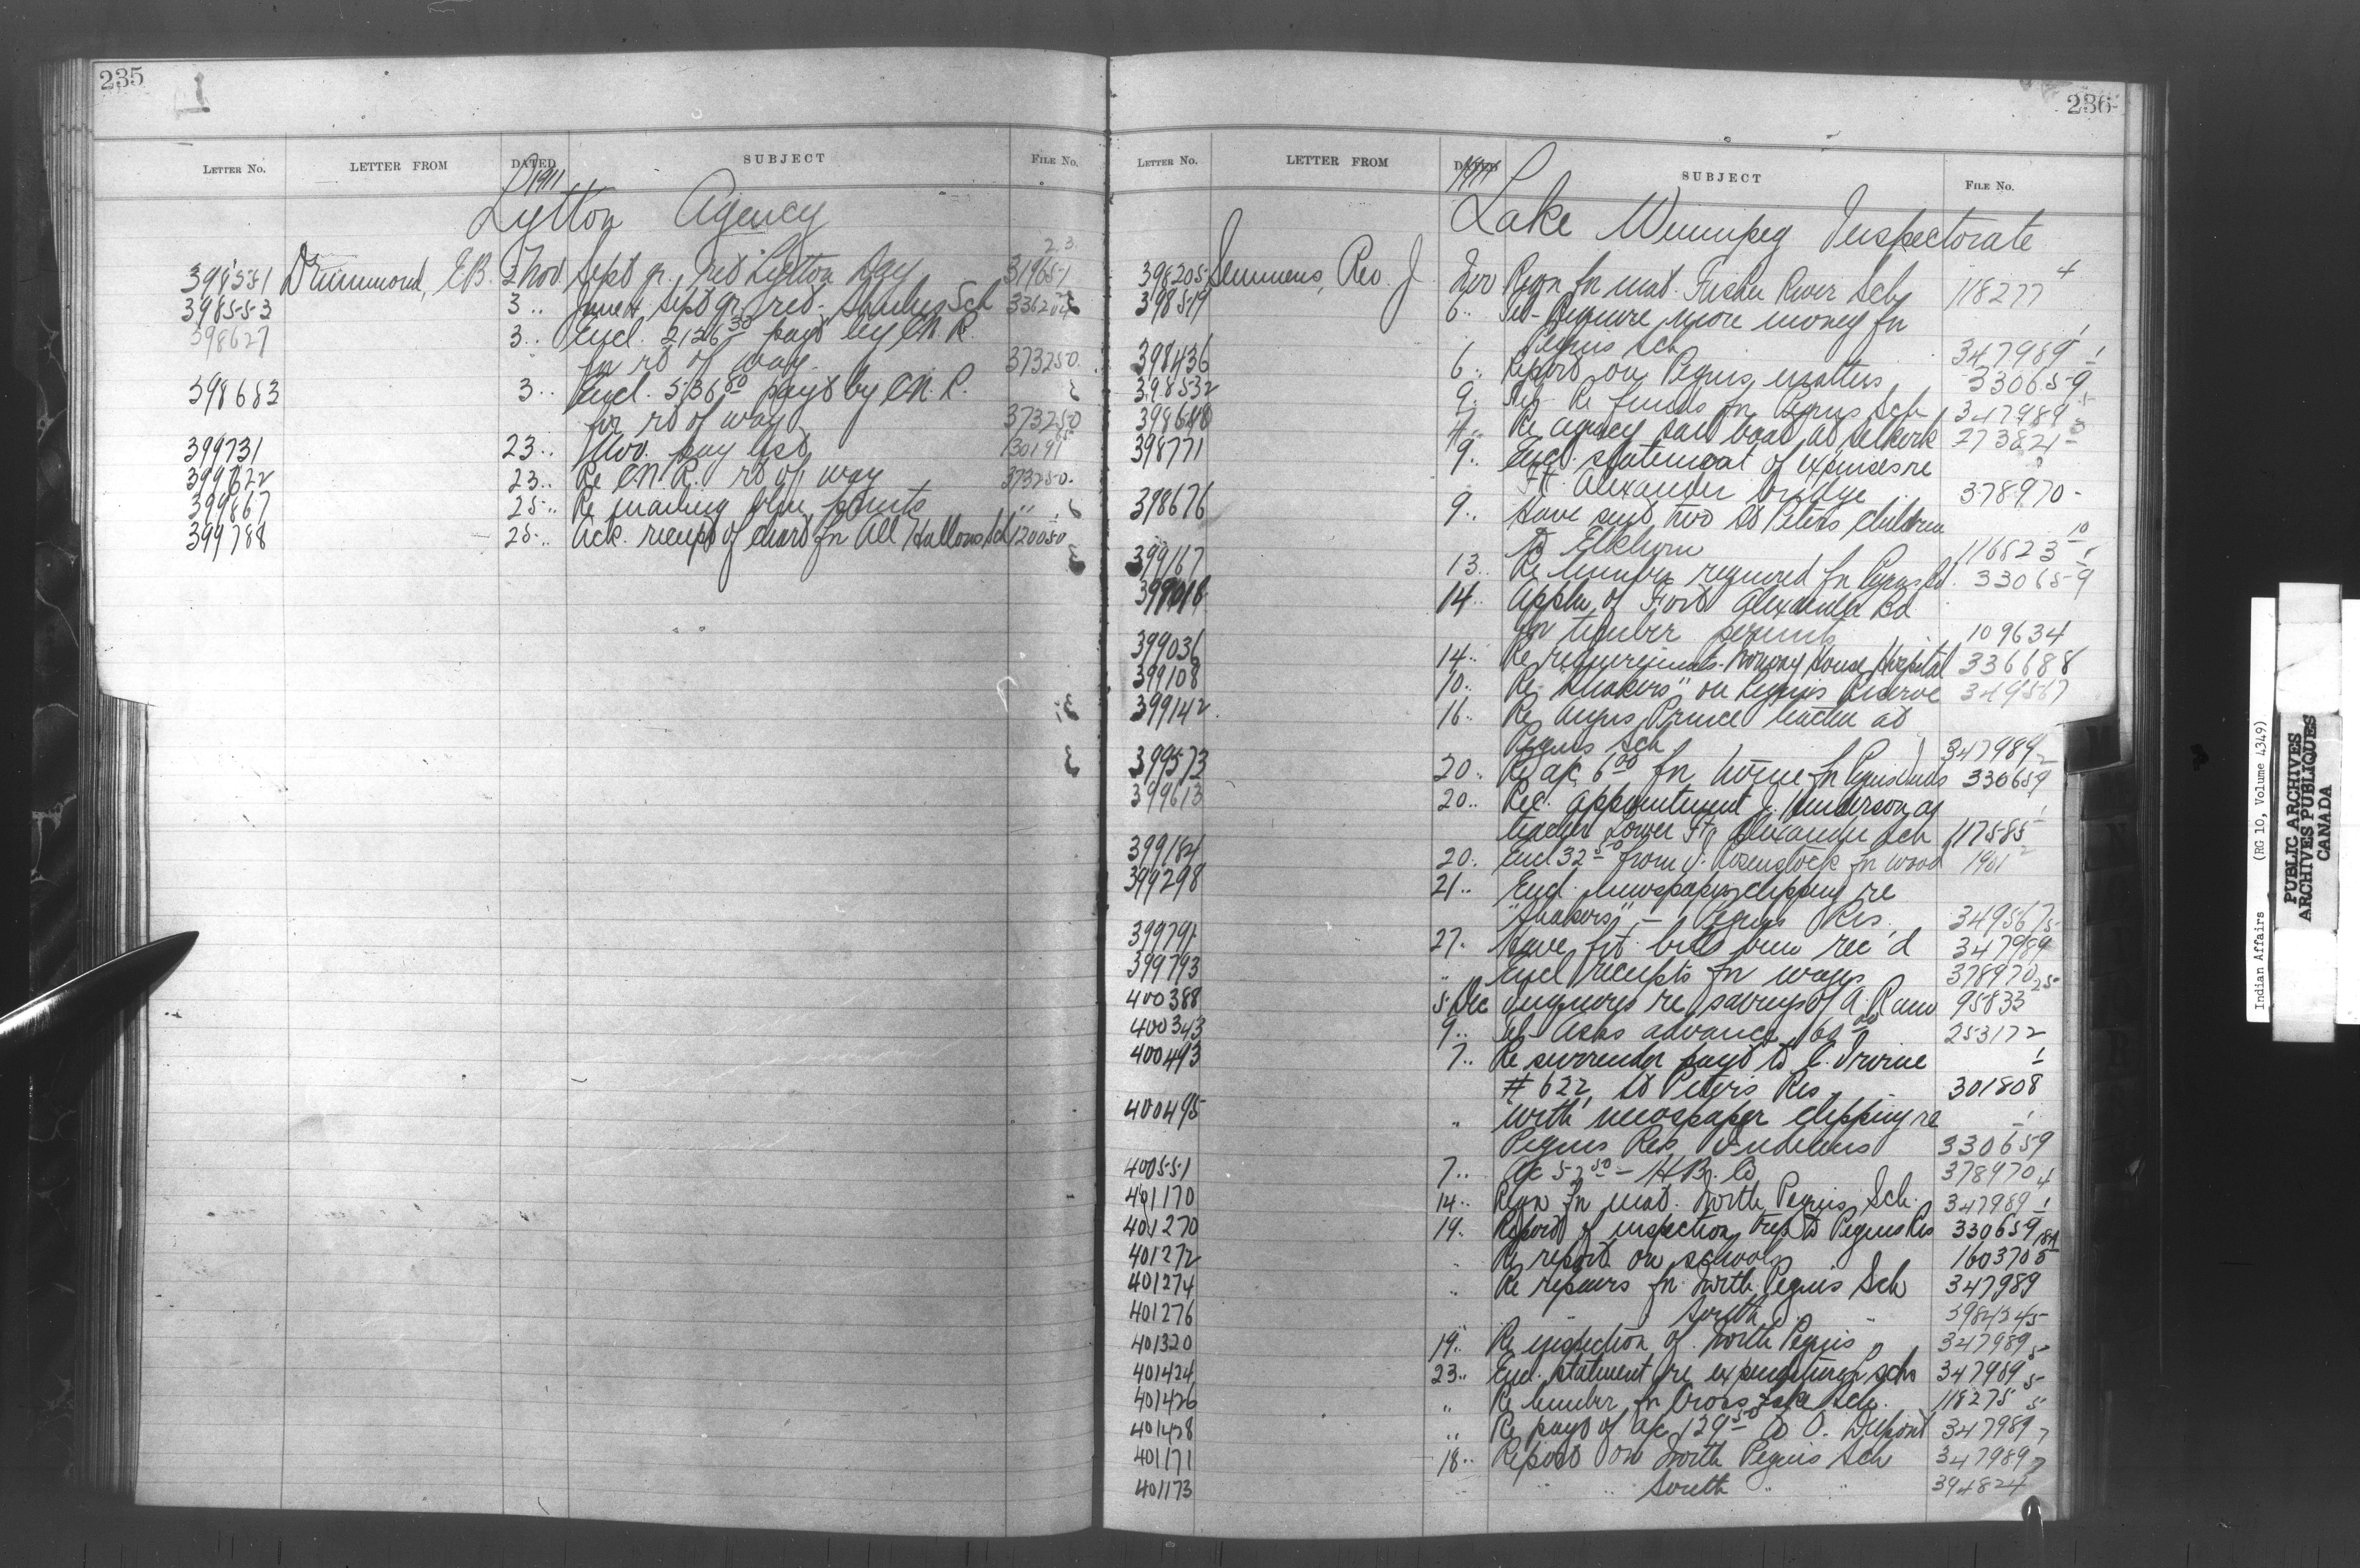 235
LETTER NO. LETTER FROM DATED SUBJECT FILE No.
1911
Lytton Agency
398551 Drummond, E.B. 2 Nov. Sept qr. ret Lytton Day 31965-1
398553 3.. June & Sept qr. ret. Sch 336204
398627 3.. Encl. 2126 30 payt by C.N.R.
for rt of way. 373250.
398683 3.. Encl. 536 80 payt by C.N.R.
for rt of way 373250
399731 23.. Nov. pay list 130191
399622 23.. Re C.N.R. rt of way 373250.
399867 25.. Re mailing blue prints " "
399788 25.. Ack. receipt of chart for All Hallows Sch 120050
236
LETTER NO. LETTER FROM DATED SUBJECT FILE No.
1911
Lake Winnipeg Inspectorate
398205 Semmens, Rev. J. Nov Reqn for mat. Fisher River Sch 118277 4
398519 6.. Tel- Require more money for
Peguis Sch 347989 1
398436 6.. Report on Peguis matters 330659 1
398532 9. Tel- Re funds for Peguis Sch 347989 5
398648 4.. Re agency sail boat at Selkirk 273821
398771 9.. Encl. statement of expenses re
Ft. Alexander bridge 378970-
398676 9.. Have sent two St Peters children
to Elkhorn 116823 10
399167 13.. Re lumber required for Peguis 330659 1
399018 14.. Appln of Fort Alexander Bd
for timber permits 109634
399036 14.. Re requirements- Norway House Hospital 336688
399108 10.. Re "Shakers" on Peguis Reserve 349567
399142 16.. Re Angus Prince teacher at
Peguis Sch 347989
399573 20.. Re a/c 6 00 for for Peguis 330659
399613 20.. Rec. appointment J. Henderson as
teacher Lower Ft. Alexander Sch 117585 1
399184 20.. Encl 32 50 from J. Rosenstock for wood 1901 2
399298 21.. Encl. newspaper clipping re
"Shakers" - Peguis Res. 349567
399791 27. Have frt. bills been rec'd 347989
399793 " Encl receipts for wages 378970
400388 5 Dec Inquires re savings of A. 95833 25
400343 9.. Tel- Asks advance 160 00 253172
400493 7.. Re surrender payt to C. Irvine
# 622, St Peter's Res. 301808 1
400495 " With newspaper clipping re
Peguis Res. Indians 330659 1
400551 7.. A/c 52 50 - H.B. Co 378970
401170 14.. Reqn for mat. North Peguis Sch. 347989 4
401270 19.. Report of inspection trip to Peguis Res 330659 1
401272 " Re report on schools 160370
401274 " Re repairs for North Peguis Sch 347989
401276 " " South "
401320 19.. Re inspection of North Peguis " 347989
401424 23.. Encl. statement re expenditure schs 347989 5
401426 " Re lumber for Cross Lake Sch. 118275 5
401428 " Re payt of a/c 129 50 to O. 347989 5
401171 18.. Report on North Peguis Sch 347989 7
401173 " " South " " 394824
Indian Affairs (RG 10, Volume 4349)
PUBLIC ARCHIVES
ARCHIVES PUBLIQUES
CANADA